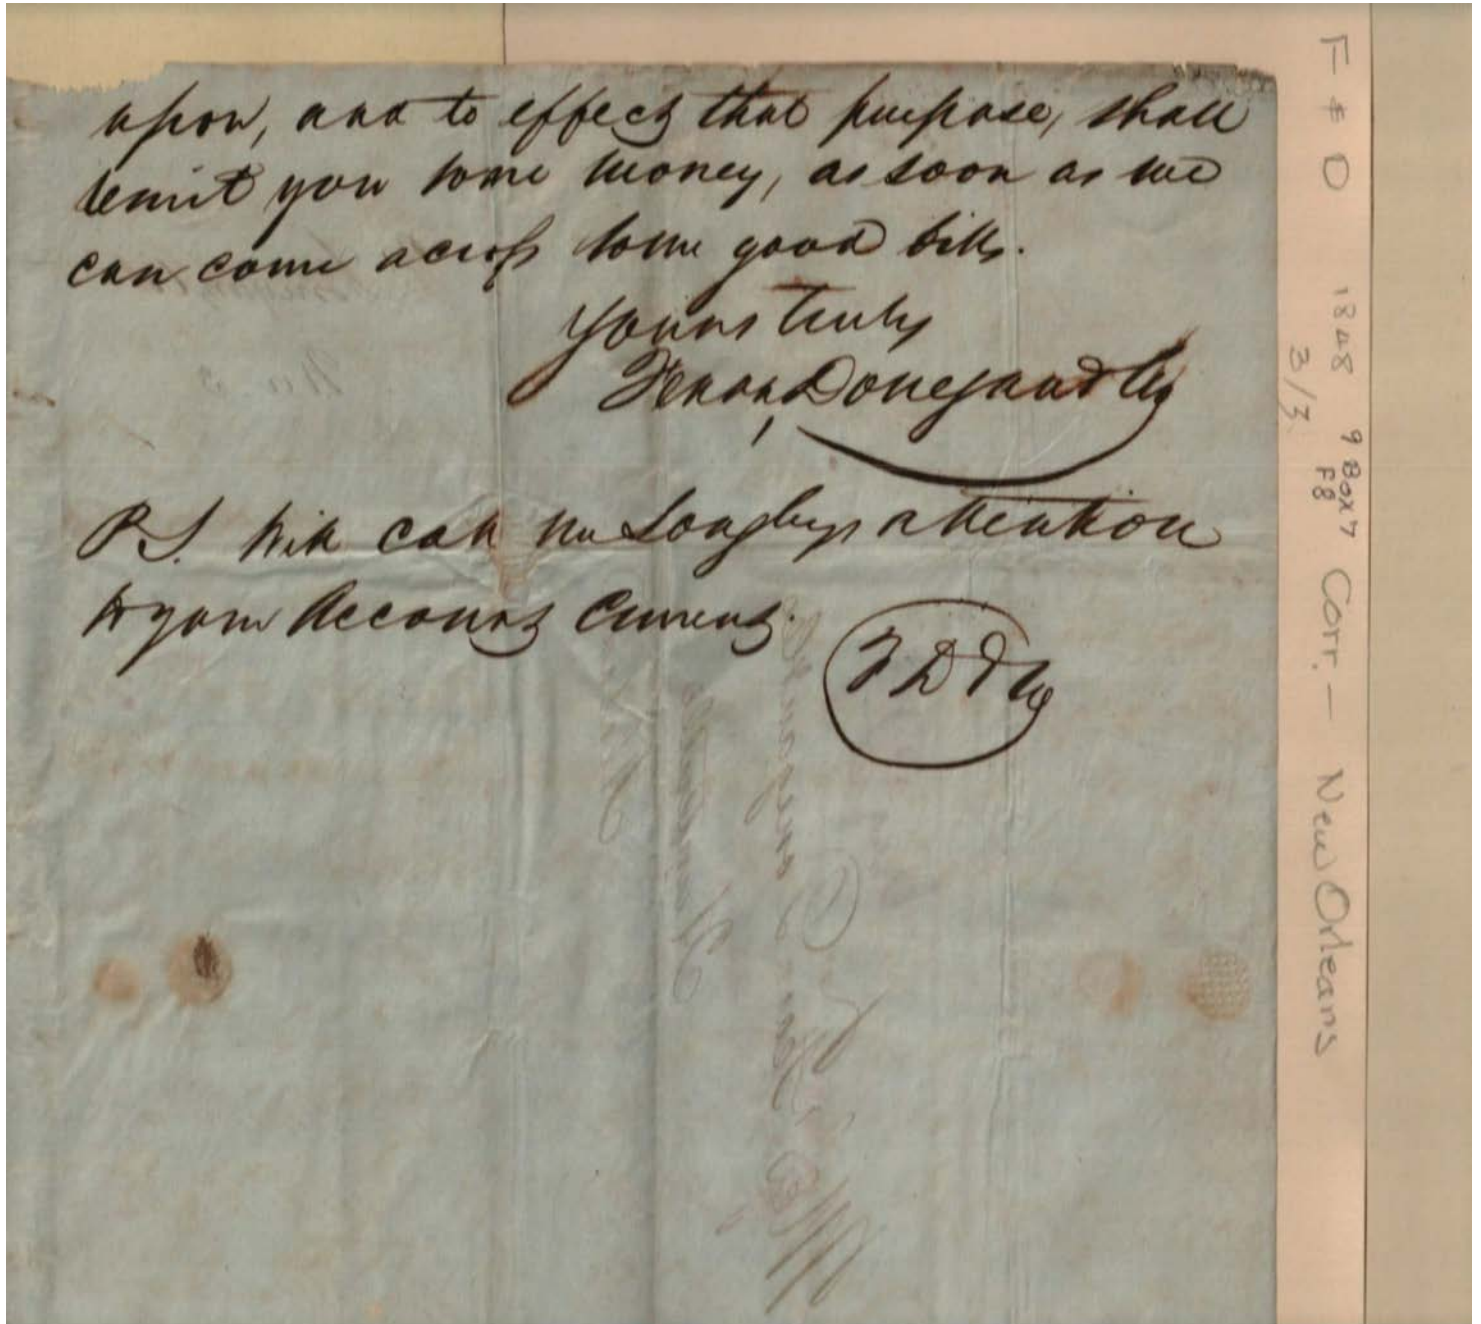 upon, and to effect that purpose, shall
remit you some money, as soon as we
can come across some good bills.
Yours truly
Fearn, Donegan & Co
P.S. Will call Mr Langley's attention
to your Account Current.
F D & Co
F & D 1848 9 Box 7 Corr. — New Orleans
3/3 F8